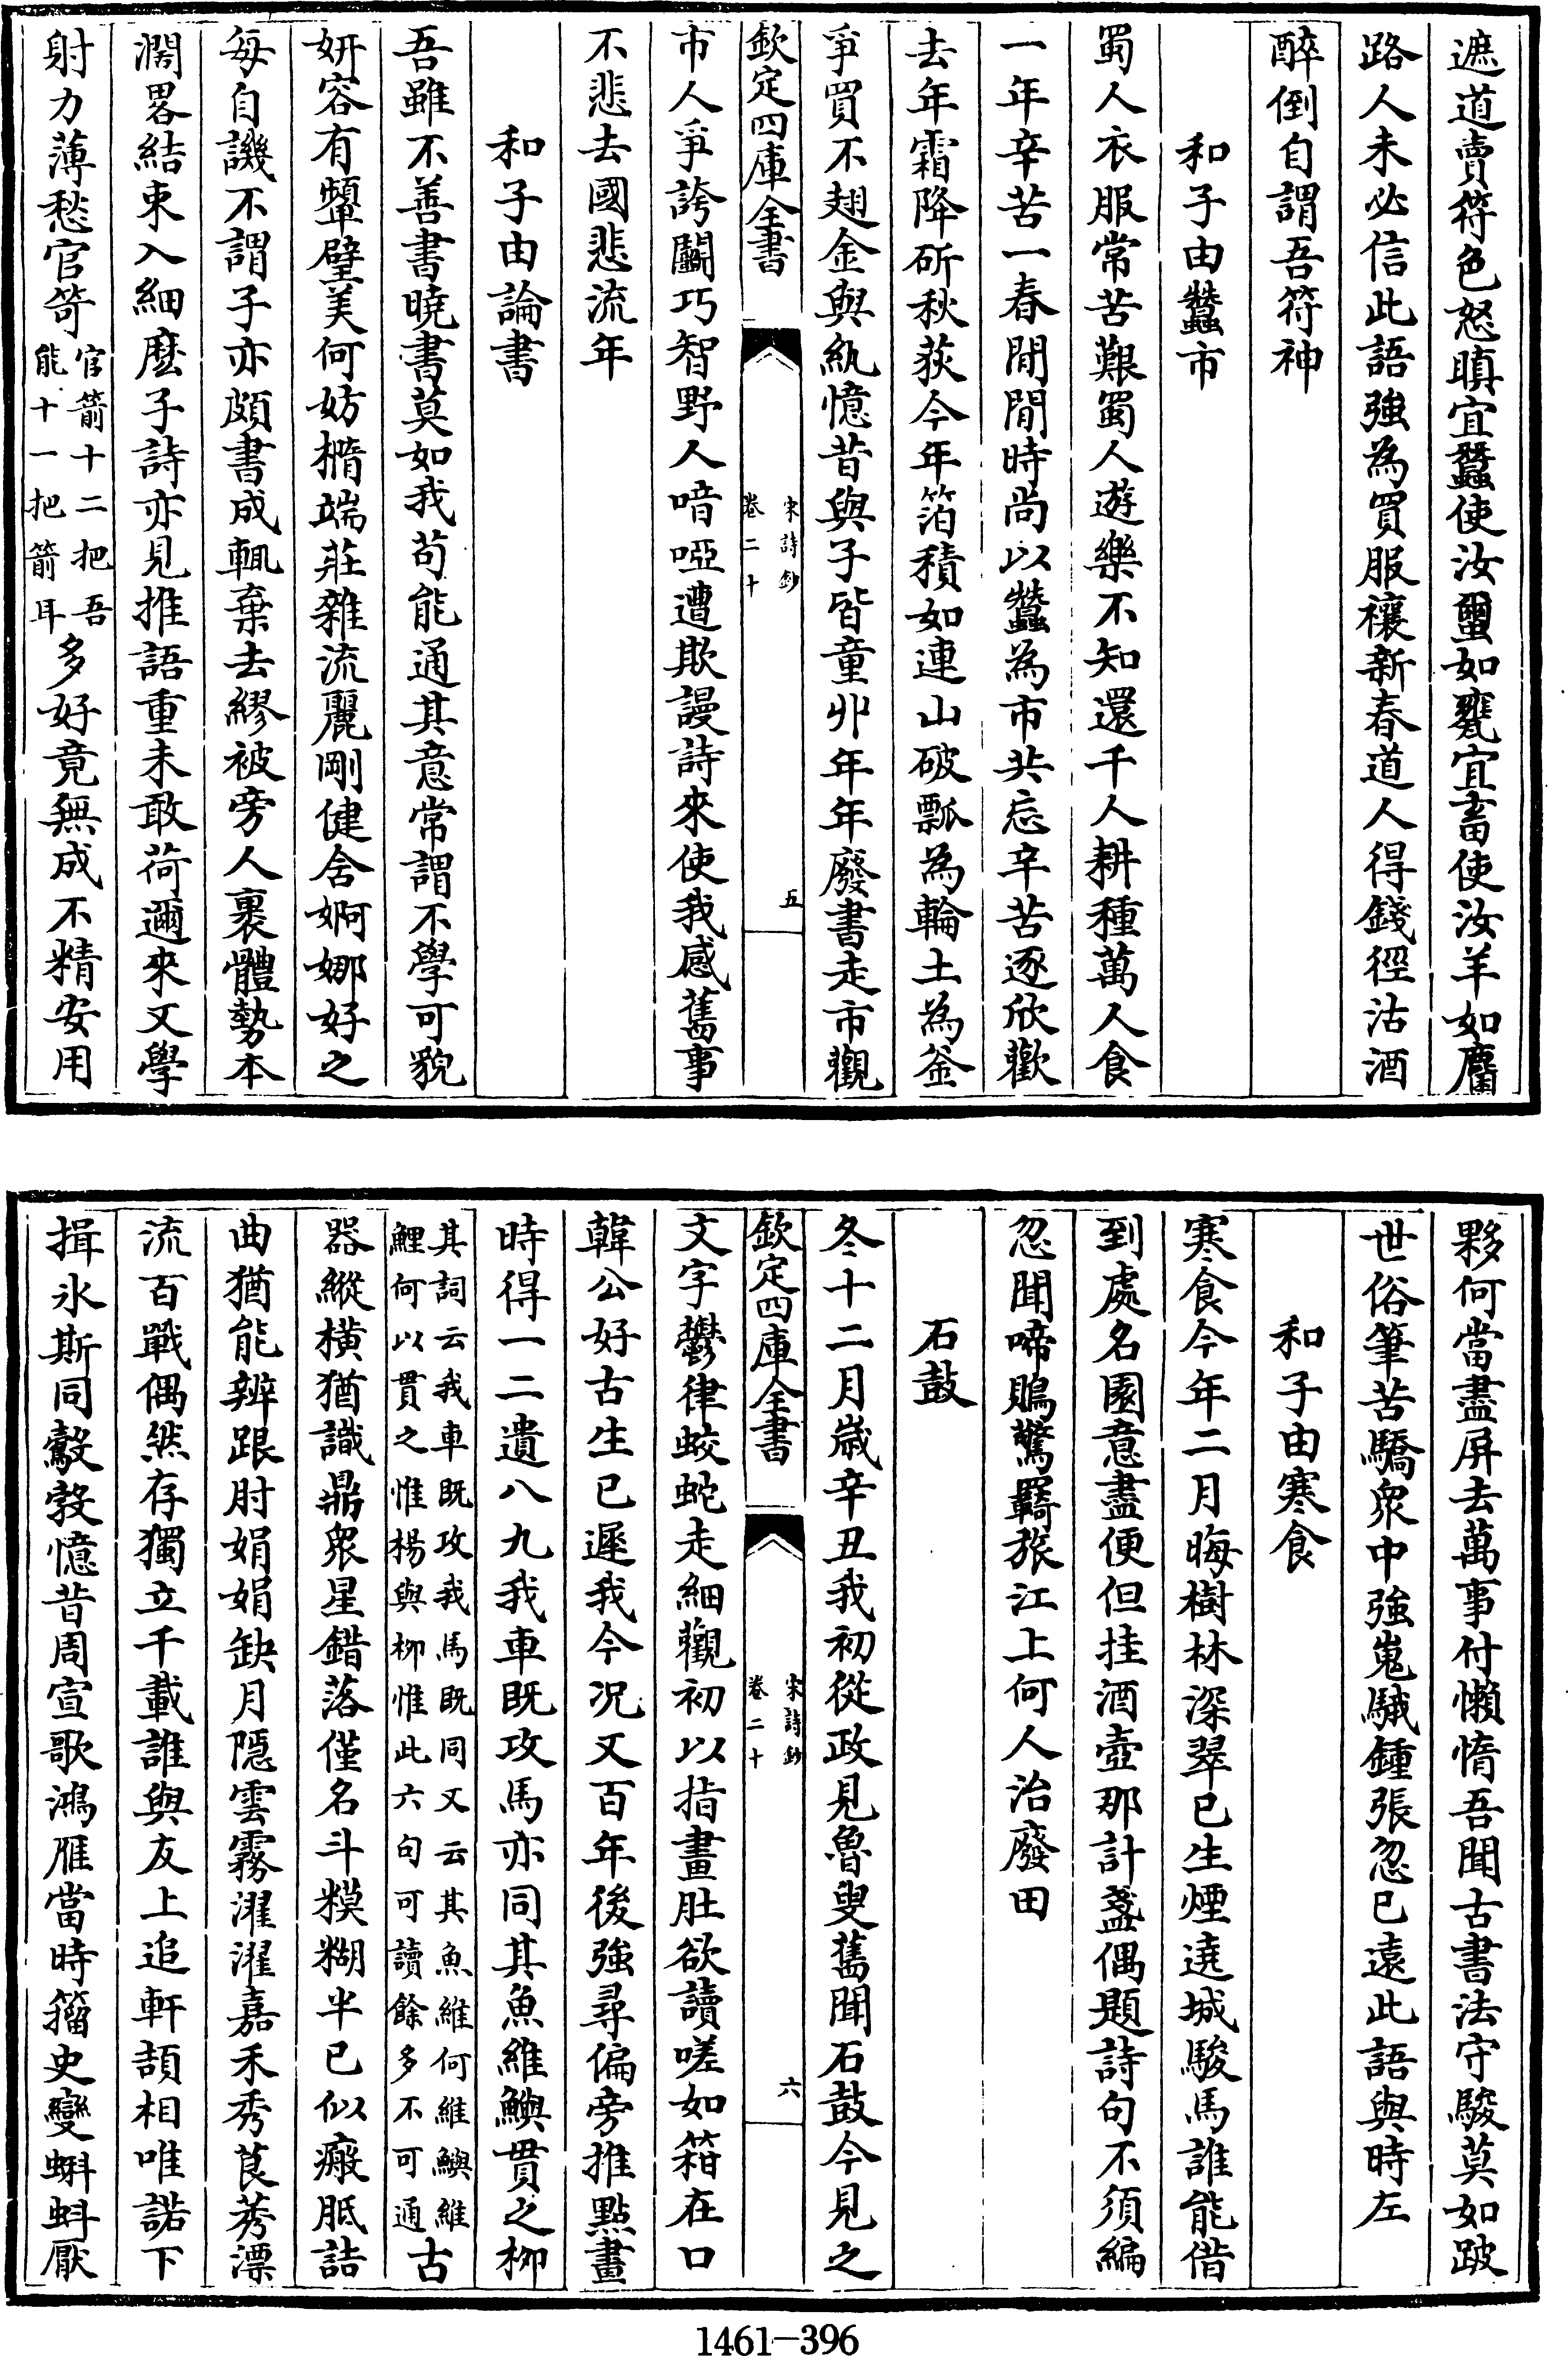 遮道賣符色怒瞋宜蠶使汝璽如甕宜畜使汝羊如麕
路人未必信此語強為買服禳新春道人得錢徑沽酒
醉倒自謂吾符神
和子由蠶市
蜀人衣服常苦艱蜀人遊樂不知還千人耕種萬人食
一年辛苦一春閒閒時尚以蠶為市共忘辛苦逐欣歡
去年霜降斫秋荻今年箔積如連山破瓢為輪土為釜
爭買不翅金與紈憶昔與子皆童丱年年廢書走市觀
欽定四庫全書
宋詩鈔
卷二十
五
市人爭誇鬭巧智野人喑啞遭欺謾詩來使我感舊事
不悲去國悲流年
和子由論書
吾雖不善書曉書莫如我苟能通其意常謂不學可貌
妍容有顰璧美何妨橢端莊雜流麗剛健含婀娜好之
每自譏不謂子亦頗書成輒棄去繆被旁人裹體勢本
濶畧結束入細麽子詩亦見推語重未敢荷邇來又學
射力薄愁官笴官箭十二把吾能十一把箭耳多好竟無成不精安用
夥何當盡屏去萬事付懶惰吾聞古書法守駿莫如跛
世俗筆苦驕衆中強嵬騀鍾張忽已遠此語與時左
和子由寒食
寒食今年二月晦樹林深翠已生煙遶城駿馬誰能借
到處名園意盡便但挂酒壺那計盞偶題詩句不須編
忽聞啼鵙驚羇旅江上何人治廢田
石鼓
冬十二月歲辛丑我初從政見魯叟舊聞石鼓今見之
欽定四庫全書
宋詩鈔
卷二十
六
文字鬱律蛟蛇走細觀初以指畫肚欲讀嗟如箝在口
韓公好古生已遲我今況又百年後強尋偏旁推點畫
時得一二遺八九我車既攻馬亦同其魚維鱮貫之柳
其詞云我車既攻我馬既同又云其魚維何維鱮維鯉何以貫之惟楊與柳惟此六句可讀餘多不可通古
器縱橫猶識鼎衆星錯落僅名斗糢糊半已似瘢胝詰
曲猶能辨跟肘娟娟缺月隱雲霧濯濯嘉禾秀莨莠漂
流百戰偶然存獨立千載誰與友上追軒頡相唯諾下
揖氷斯同鷇㝅憶昔周宣歌鴻雁當時籀史變蝌蚪厭
1461-396